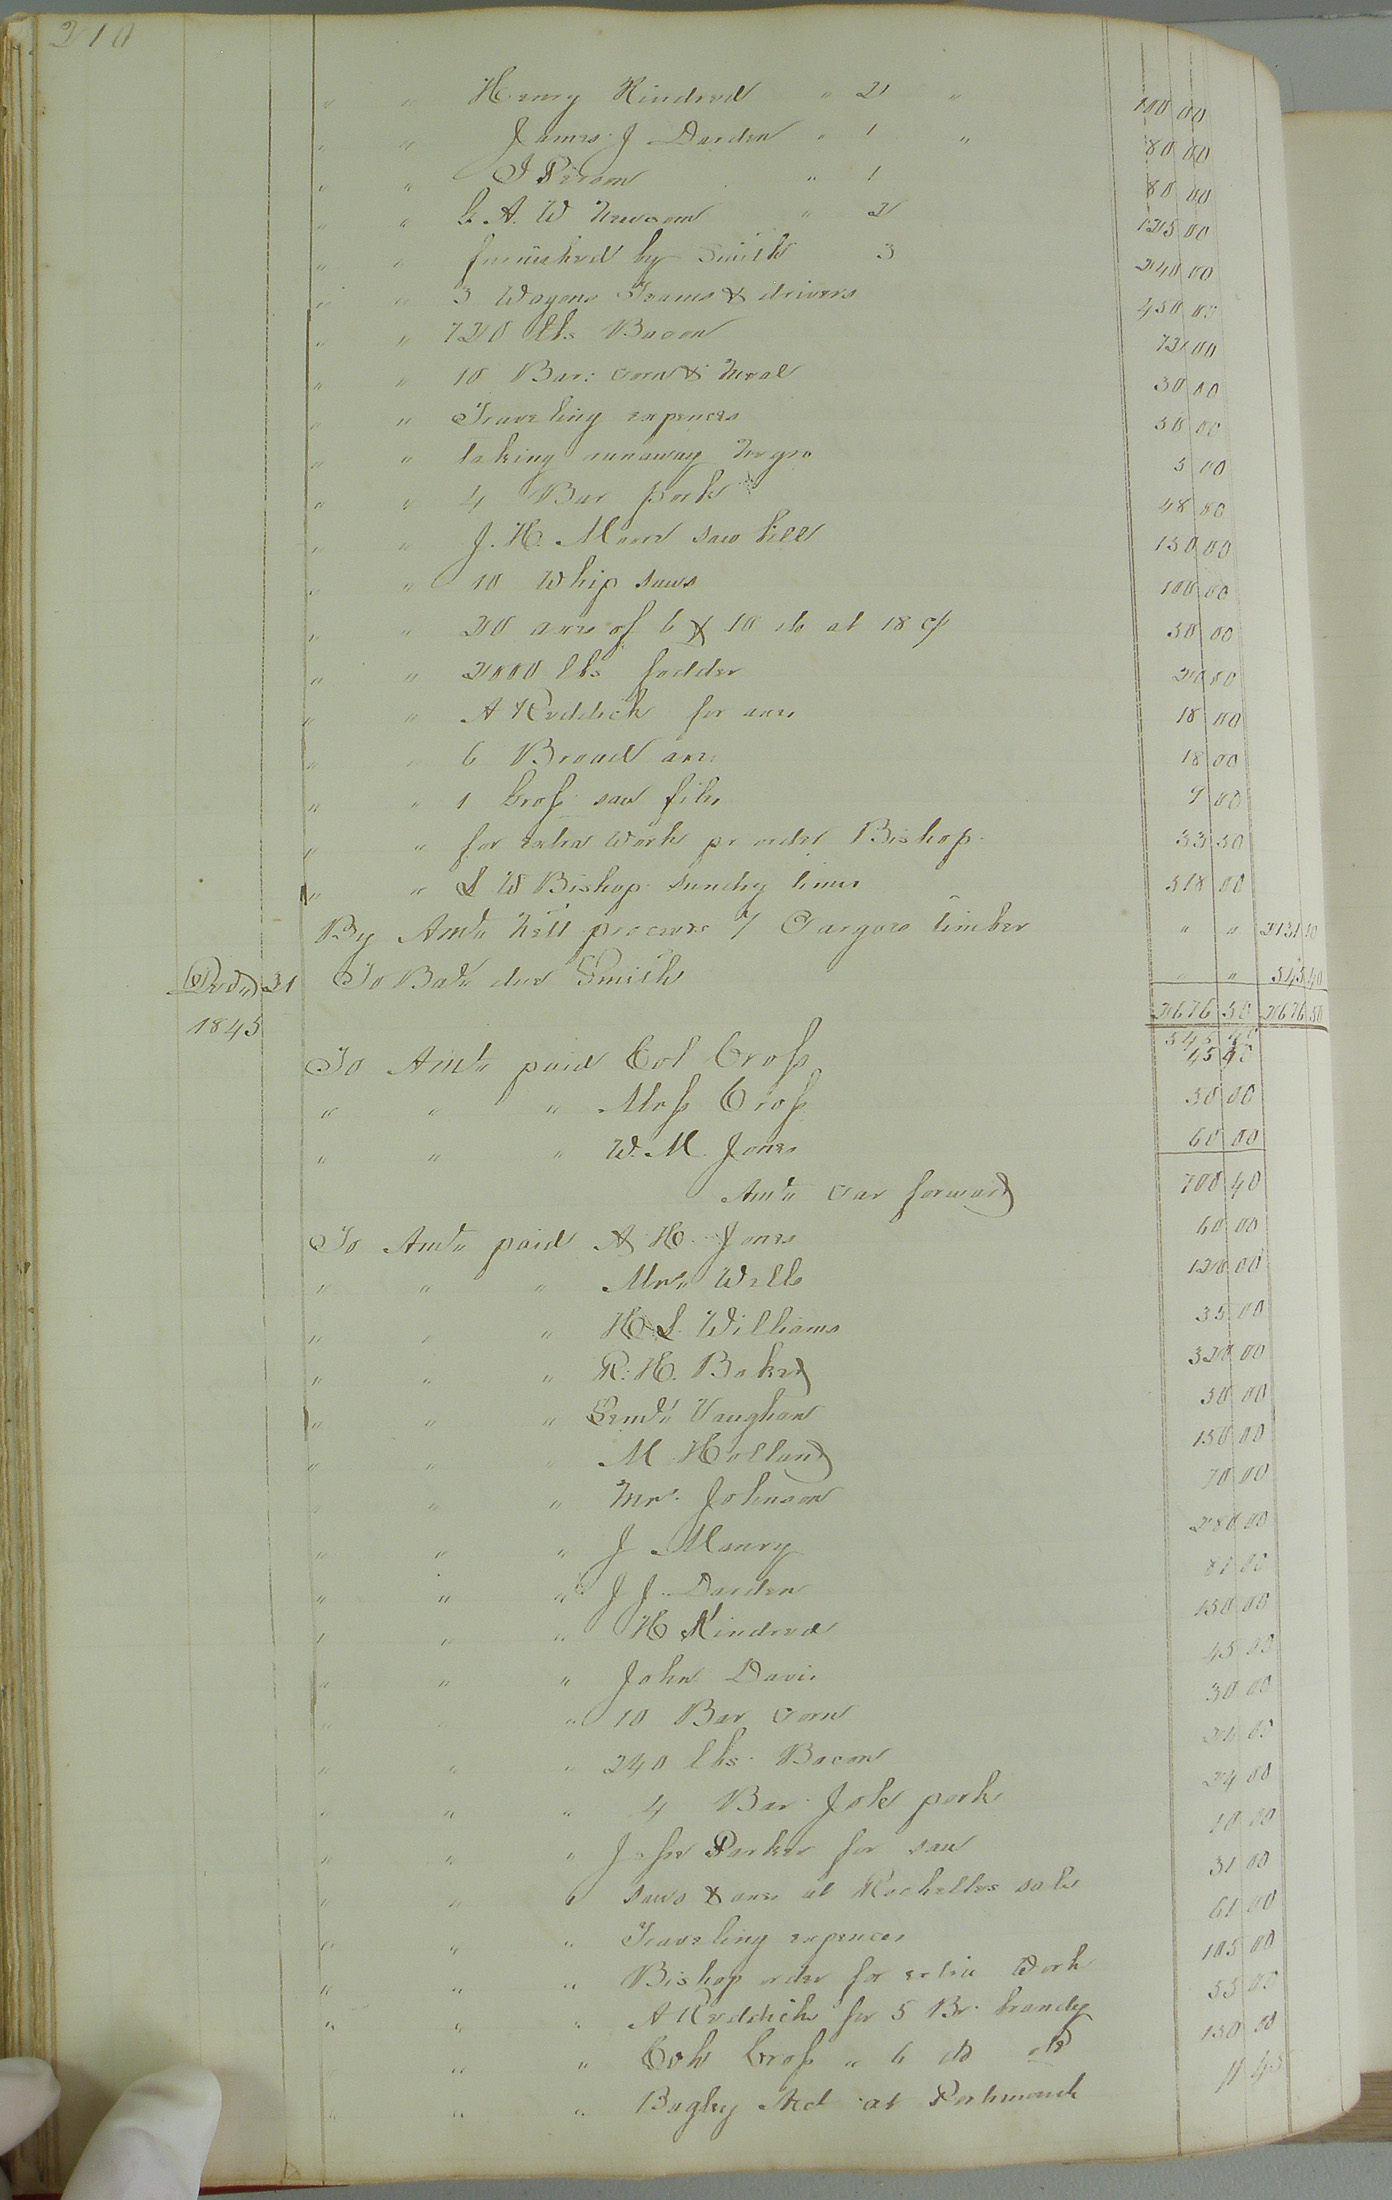 210
" " Henry Kindred " 2 " 100 00
" " James J Darden " 1 " 80 00
" " J " 1 80 00
" " G. A. W Newsom " 2 125 00
" " furnished by Smith 3 240 00
" " 3 Wagons Teams & drivers 450 00
" " 720 lbs Bacon 72 00
" " 10 Bar: corn & meal 30 00
" " Traveling expences 50 00
" " taking runaway Negro 5 00
" " 4 Bar pork 48 00
" " J. H. saw bill 150 00
" " 10 Whip saws 100 00
" " 20 axes of 6 & 10 do at 18 c/ 50 00
" " 2000 lbs fodder 20 00
" " A Reddick for axes 18 00
" " 6 Broad axes 18 00
" " 1 Gross saw files 7 00
" " for extra work pr order Bishop 33 50
" " S W Bishop sundry times 518 00
By Amt nett 7 Cargoes timber " " 2131 10
Decd 31 To Bal due Smith " " 545 40
2676 50 2676 50
1845 545 40
To Amt paid Col Cross 45 40
" " " Mrss Cross 50 00
" " " W. M Jones 60 00
Amt Car forward 700 40
To Amt paid A H Jones 60 00
" " " Mrs Wells 120 00
" " " H. S. Williams 35 00
" " " R. H. Baker 320 00
" " " Vaughan 50 00
" " " M Holland 150 00
" " " Mr. Johnson 70 00
" " " J Manry 280 00
" " " J J Darden 81 00
" " " H Kindred 150 00
" " " John Davis 45 00
" " " 10 Bar Corn 30 00
" " " 240 lbs. Bacon 24 00
" " " 4 Bar Jole pork 24 00
" " " Jesse Parker for saw 10 00
" " " saws & axes at Rochelles sale 31 00
" " " Traveling expences 61 00
" " " Bishop order for extra Work 105 00
" " " A Reddick for 5 Br. brandy 55 00
" " " Col Cross " 6 do old 150 00
" " " Bagley Act at Portsmouth 11 45